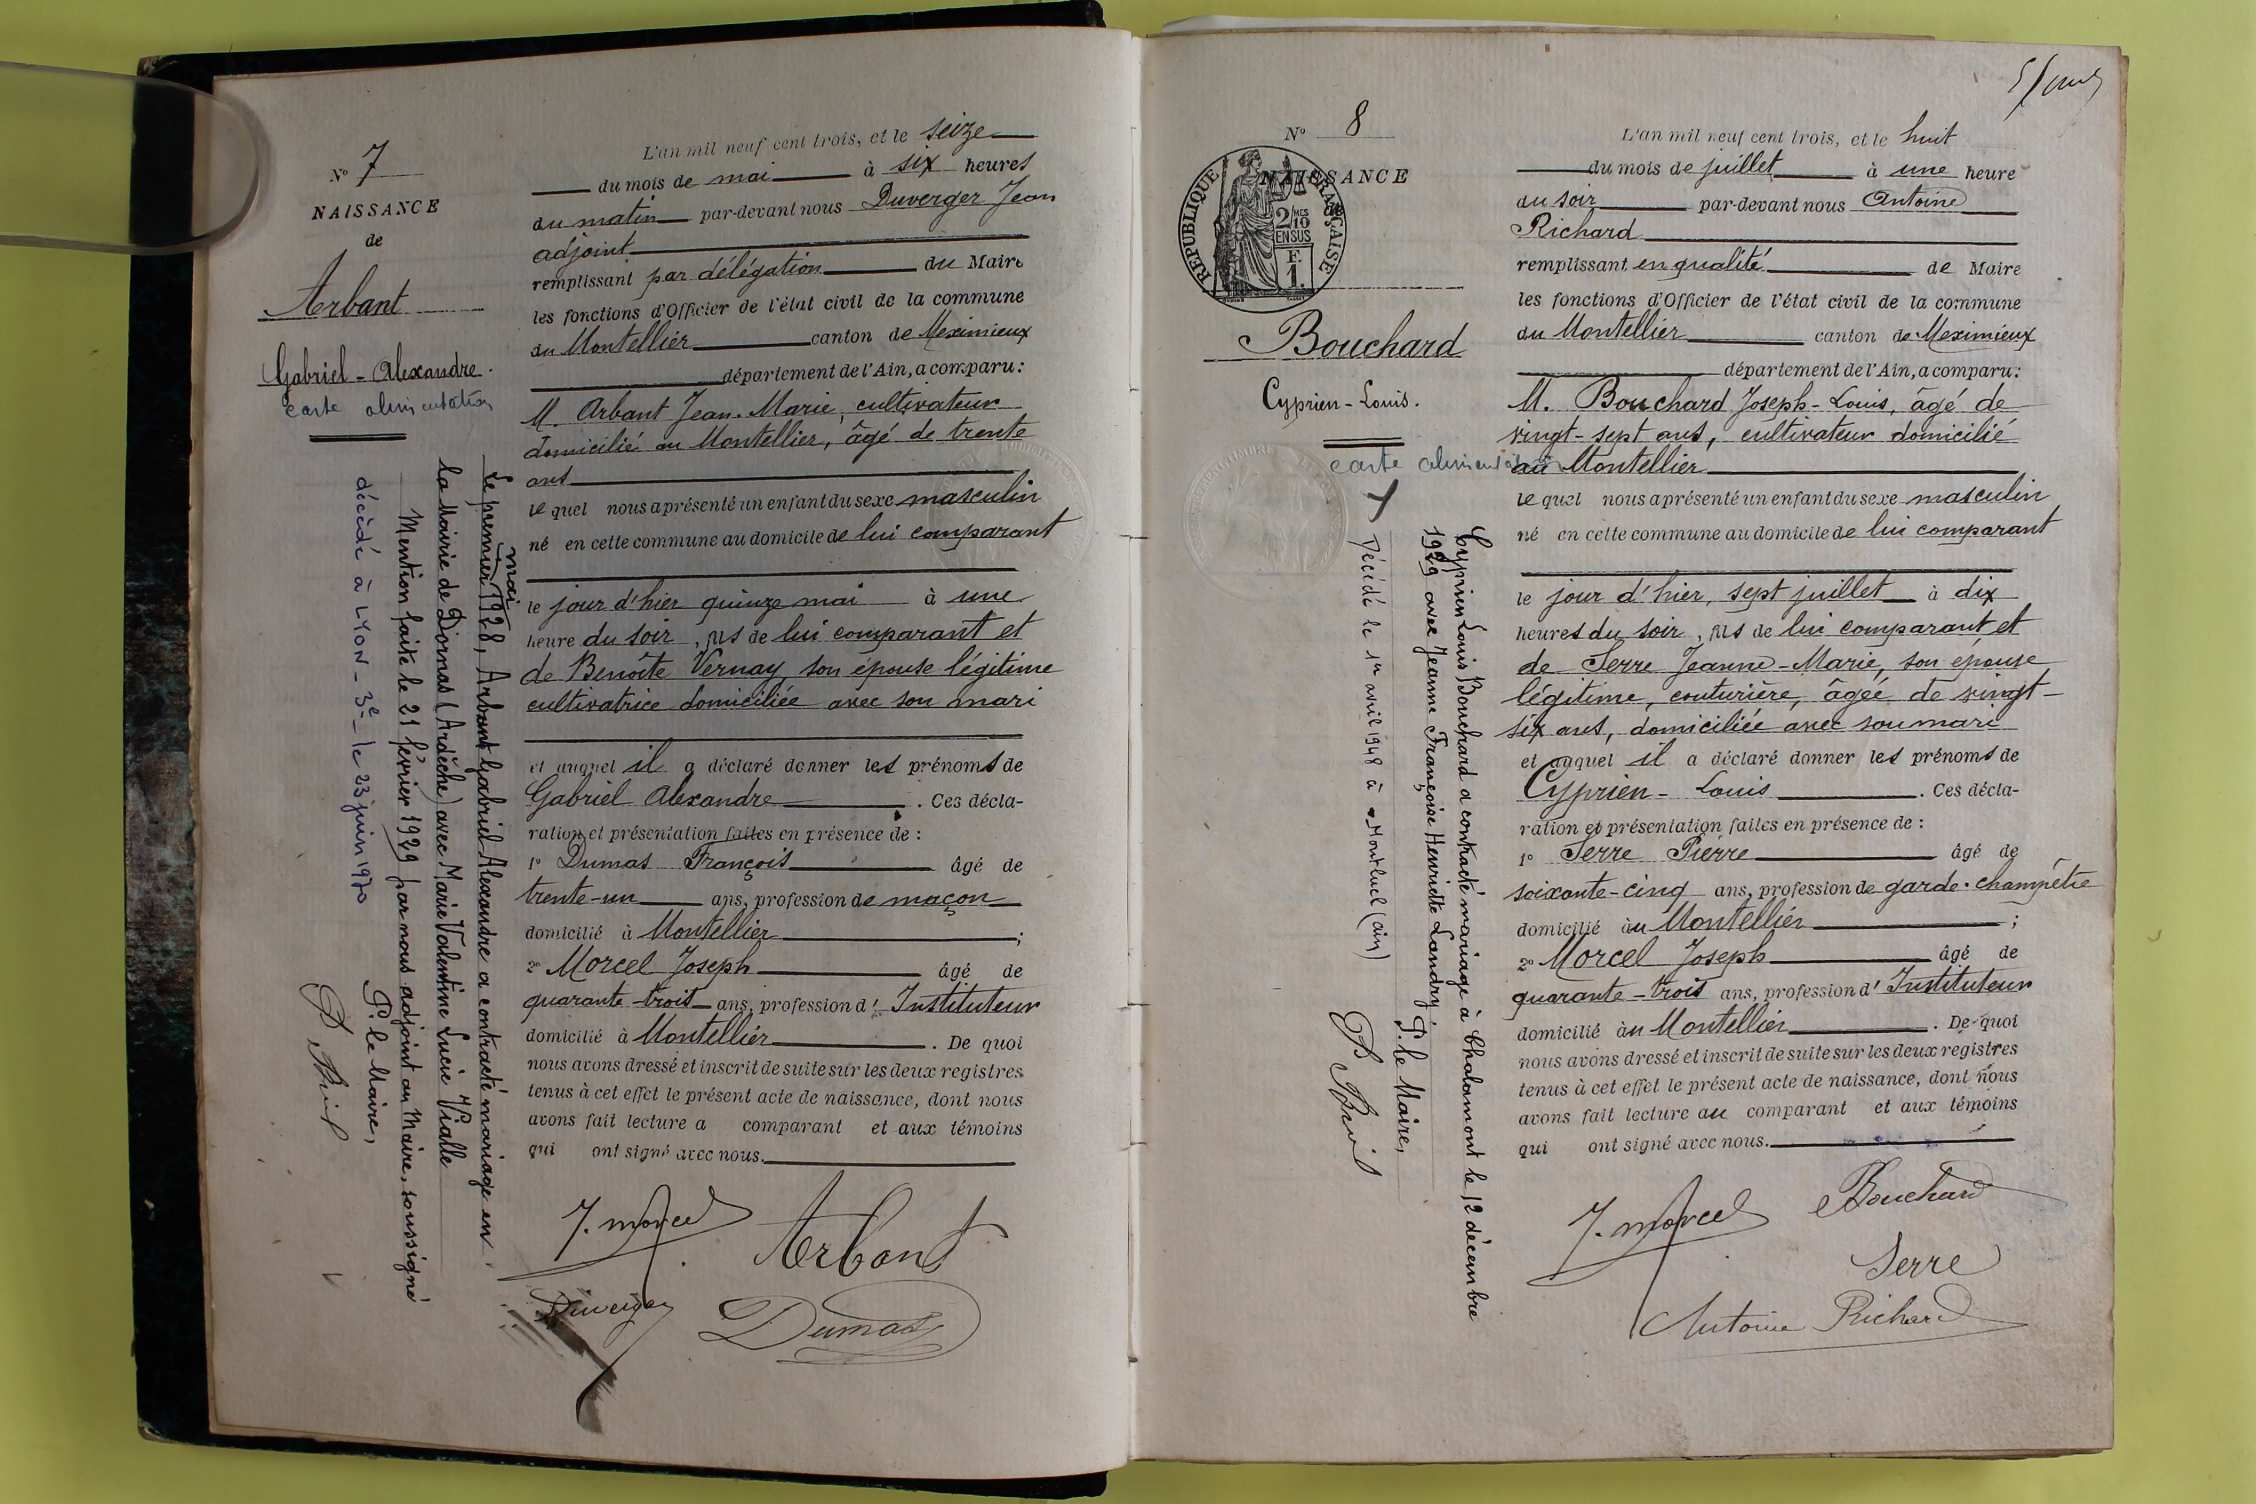 N° 7
NAISSANCE
de
Arbant
Gabriel-Alexandre.
carte alimentation
Le premier mai 1928, Arbant Gabriel Alexandre a contracté mariage en
la Mairie de Dornas (Ardèche) avec Marie Valentine Lucie Vialle
Mention faite le 21 février 1929 par nous adjoint au Maire, soussigné
P. le Maire,
décédé à LYON - 3e - le 23 juin 1970
L'an mil neuf cent trois, et le seize
du mois de mai à six heures
du matin par-devant nous Duverger Jean
adjoint
remplissant par délégation du Maire
les fonctions d'Officier de l'état civil de la commune
du Montellier canton de Meximieux
département de l'Ain, a comparu:
M. Arbant Jean-Marie, cultivateur
domicilié au Montellier, âgé de trente
ans
lequel nous a présenté un enfant du sexe masculin
né en cette commune au domicile de lui comparant
le jour d'hier quinze mai à une
heure du soir, fils de lui comparant et
de Benoîte Vernay, son épouse légitime
cultivatrice domiciliée avec son mari
et auquel il a déclaré donner les prénoms de
Gabriel Alexandre. Ces décla-
ration et présentation faites en présence de :
1° Dumas François âgé de
trente-un ans, profession de maçon
domicilié à Montellier ;
2° Morcel Joseph âgé de
quarante-trois ans, profession d'Instituteur
domicilié à Montellier. De quoi
nous avons dressé et inscrit de suite sur les deux registres
tenus à cet effet le présent acte de naissance, dont nous
avons fait lecture a comparant et aux témoins
qui ont signé avec nous.
J. Morcel Arbant
Duverger Dumas
N° 8
NAISSANCE
de
REPUBLIQUE FRANÇAISE
2/10
MES
EN SUS
F.
1.
Bouchard
Cyprien-Louis.
carte alimentation
Cyprien Louis Bouchard a contracté mariage à Chalamont le 12 décembre
1929 avec Jeanne Françoise Henriette Landry
P. le Maire,
Décédé le 1er avril 1948 à Montluel (Ain)
L'an mil neuf cent trois, et le huit
du mois de juillet à une heure
du soir par-devant nous Antoine
Richard
remplissant en qualité de Maire
les fonctions d'Officier de l'état civil de la commune
du Montellier canton de Meximieux
département de l'Ain, a comparu:
M. Bouchard Joseph-Louis, âgé de
vingt-sept ans, cultivateur domicilié
au Montellier
lequel nous a présenté un enfant du sexe masculin
né en cette commune au domicile de lui comparant
le jour d'hier, sept juillet à dix
heures du soir, fils de lui comparant et
de Serre Jeanne-Marie, son épouse
légitime, couturière, âgée de vingt-
six ans, domiciliée avec son mari
et auquel il a déclaré donner les prénoms de
Cyprien-Louis. Ces décla-
ration et présentation faites en présence de :
1° Serre Pierre âgé de
soixante-cinq ans, profession de garde-champêtre
domicilié au Montellier ;
2° Morcel Joseph âgé de
quarante-trois ans, profession d'Instituteur
domicilié au Montellier. De quoi
nous avons dressé et inscrit de suite sur les deux registres
tenus à cet effet le présent acte de naissance, dont nous
avons fait lecture au comparant et aux témoins
qui ont signé avec nous.
J. Morcel Bouchard
Serre
Antoine Richard